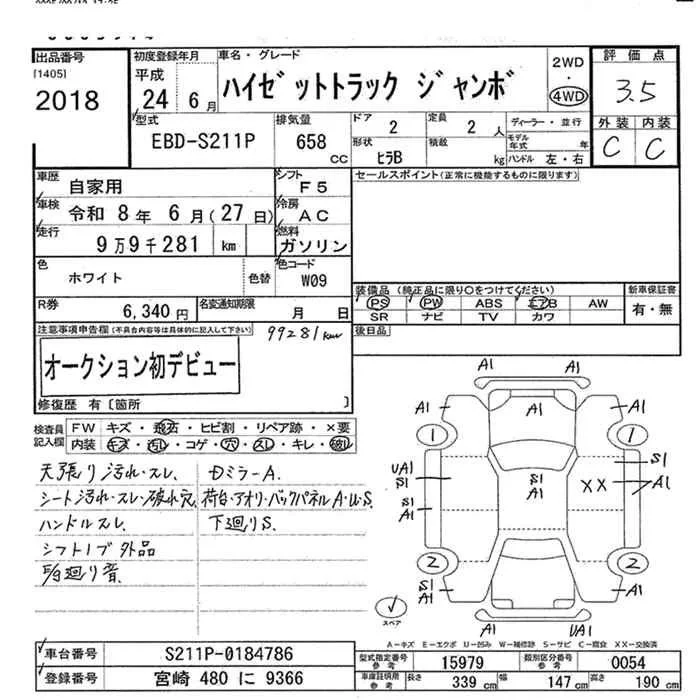 出品番号
[1405]
2018
初度登録年月
平成
24年 6月
車名・グレード
ハイゼットトラック ジャンボ
2WD
・
4WD
評価点
3.5
型式
EBD-S211P
排気量
658
CC
ドア
2
定員
2人
形状
ヒラB
積載
kg
ディーラー・並行
モデル年式 年
ハンドル 左・右
外装 内装
C C
車歴
自家用
シフト
F5
セールスポイント(正常に機能するものに限ります)
車検
令和 8年 6月(27日)
冷房
AC
走行
9万9千281 km
燃料
ガソリン
色
ホワイト
色替
色コード
W09
装備品(純正品に限り○をつけてください)
新車保証書
PS PW ABS エアB AW
有・無
SR ナビ TV カワ
R券
6,340円
名変通知期限
月 日
後日品
注意事項申告欄(不具合内容等は具体的に記入して下さい)
99281km
オークション初デビュー
修復歴 有〔箇所 〕
検査員記入欄
FW キズ・飛石・ヒビ割・リペア跡・×要
内装 キズ・汚れ・コゲ・穴・スレ・キレ・破レ
天張り汚れ・スレ
シート汚れ・スレ・破れ穴
ハンドルスレ
シフトノブ外品
Dミラー A.
荷台・アオリ・バックパネル A・U・S.
下廻りS.
A1
A1
A1 A1 A1
1 1
UA1
S1
S1
A1
S1
A1
XX
S1
A1
2 2
S1
A1
A1
A1 UA1
スペア
A=キズ E=エクボ U=凹み W=補修跡 S=サビ C=腐食 XX=交換済
車台番号
S211P-0184786
登録番号
宮崎 480 に 9366
型式指定番号
参考
15979
類別区分番号
参考
0054
車庫証明用
参考
長さ 339cm
幅 147cm
高さ 190cm